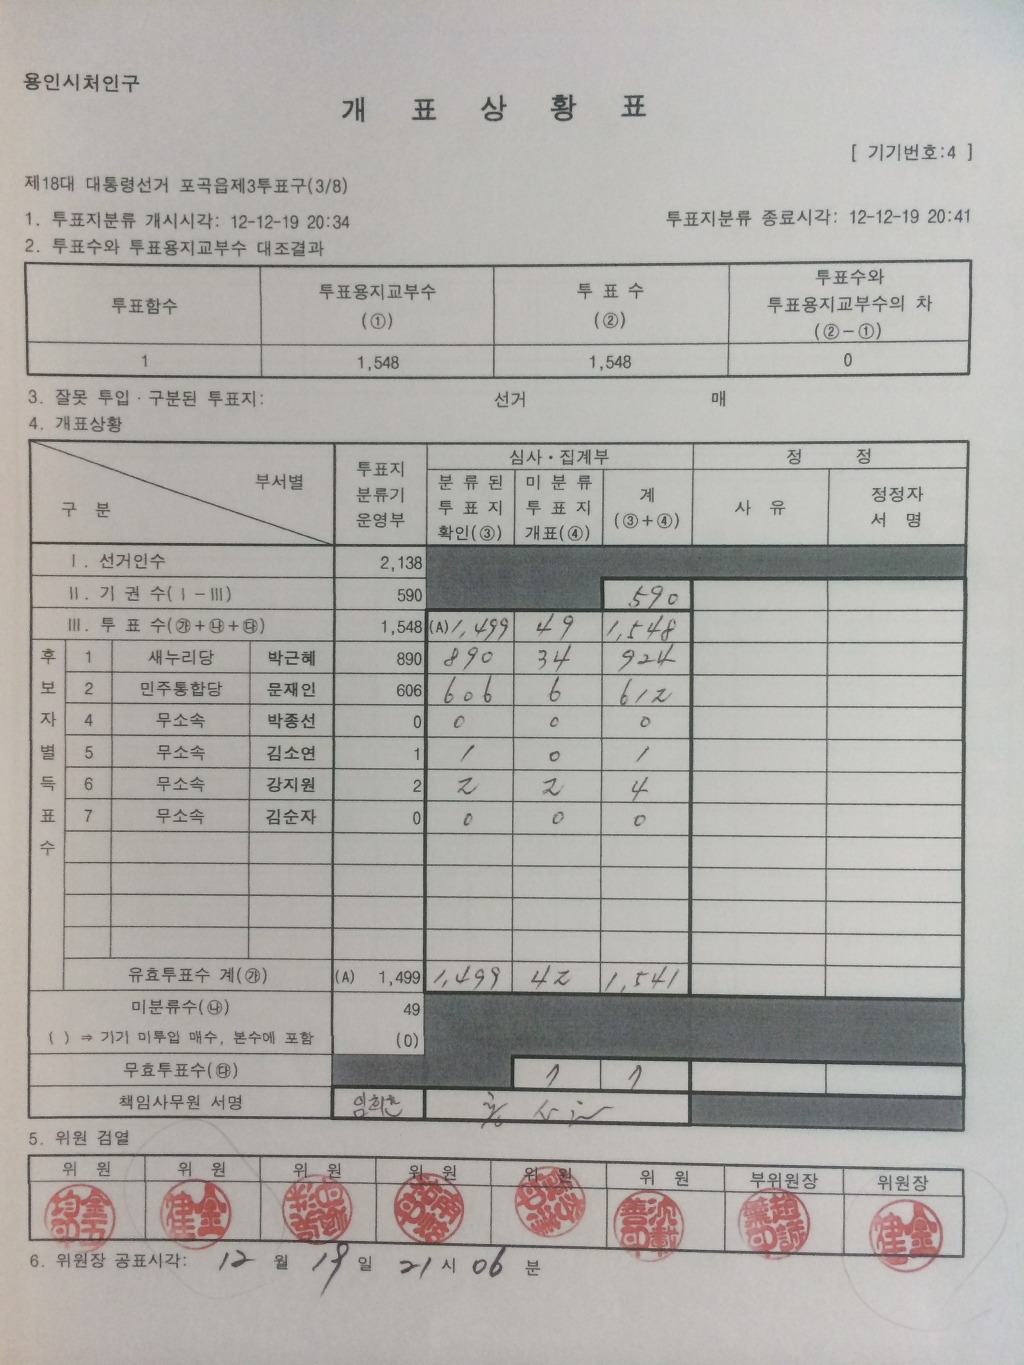 용인시처인구
개 표 상 황 표
[ 기기번호:4 ]
제18대 대통령선거 포곡읍제3투표구(3/8)
1. 투표지분류 개시시각: 12-12-19 20:34 투표지분류 종료시각: 12-12-19 20:41
2. 투표수와 투표용지교부수 대조결과
투표함수 투표용지교부수 (①) 투 표 수 (②) 투표수와 투표용지교부수의 차 (②-①)
1 1,548 1,548 0
3. 잘못 투입·구분된 투표지: 선거 매
4. 개표상황
구 분 부서별 투표지 분류기 운영부 심사·집계부 정 정
분 류 된 투 표 지 확인(③) 미 분 류 투 표 지 개표(④) 계 (③+④) 사 유 정정자 서 명
Ⅰ. 선거인수 2,138
Ⅱ. 기 권 수(Ⅰ-Ⅲ) 590 590
Ⅲ. 투 표 수(㉮+㉯+㉰) 1,548 (A) 1,499 49 1,548
후보자별득표수
1 새누리당 박근혜 890 890 34 924
2 민주통합당 문재인 606 606 6 612
4 무소속 박종선 0 0 0 0
5 무소속 김소연 1 1 0 1
6 무소속 강지원 2 2 2 4
7 무소속 김순자 0 0 0 0
유효투표수 계(㉮) (A) 1,499 1,499 42 1,541
미분류수(㉯) 49
( ) ⇒ 기기 미투입 매수, 본수에 포함 (0)
무효투표수(㉰) 7 7
책임사무원 서명
5. 위원 검열
위 원 위 원 위 원 위 원 위 원 위 원 부위원장 위원장
6. 위원장 공표시각: 12 월 19 일 21 시 06 분